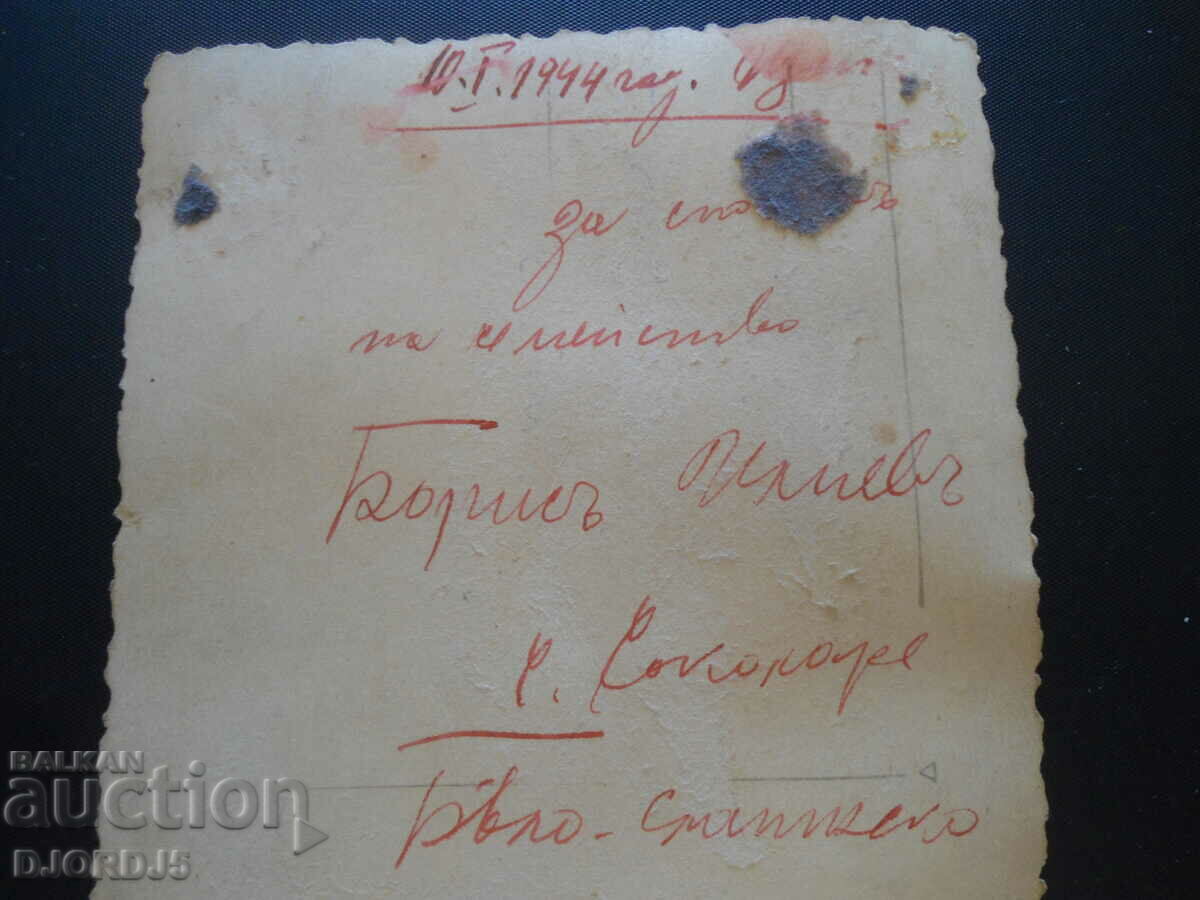 10.I.1944 год.
за
на семейство
Борисъ Илиевъ
с. Соколаре
Бѣло-слатинско
BALKAN
auction
DJORDJ5